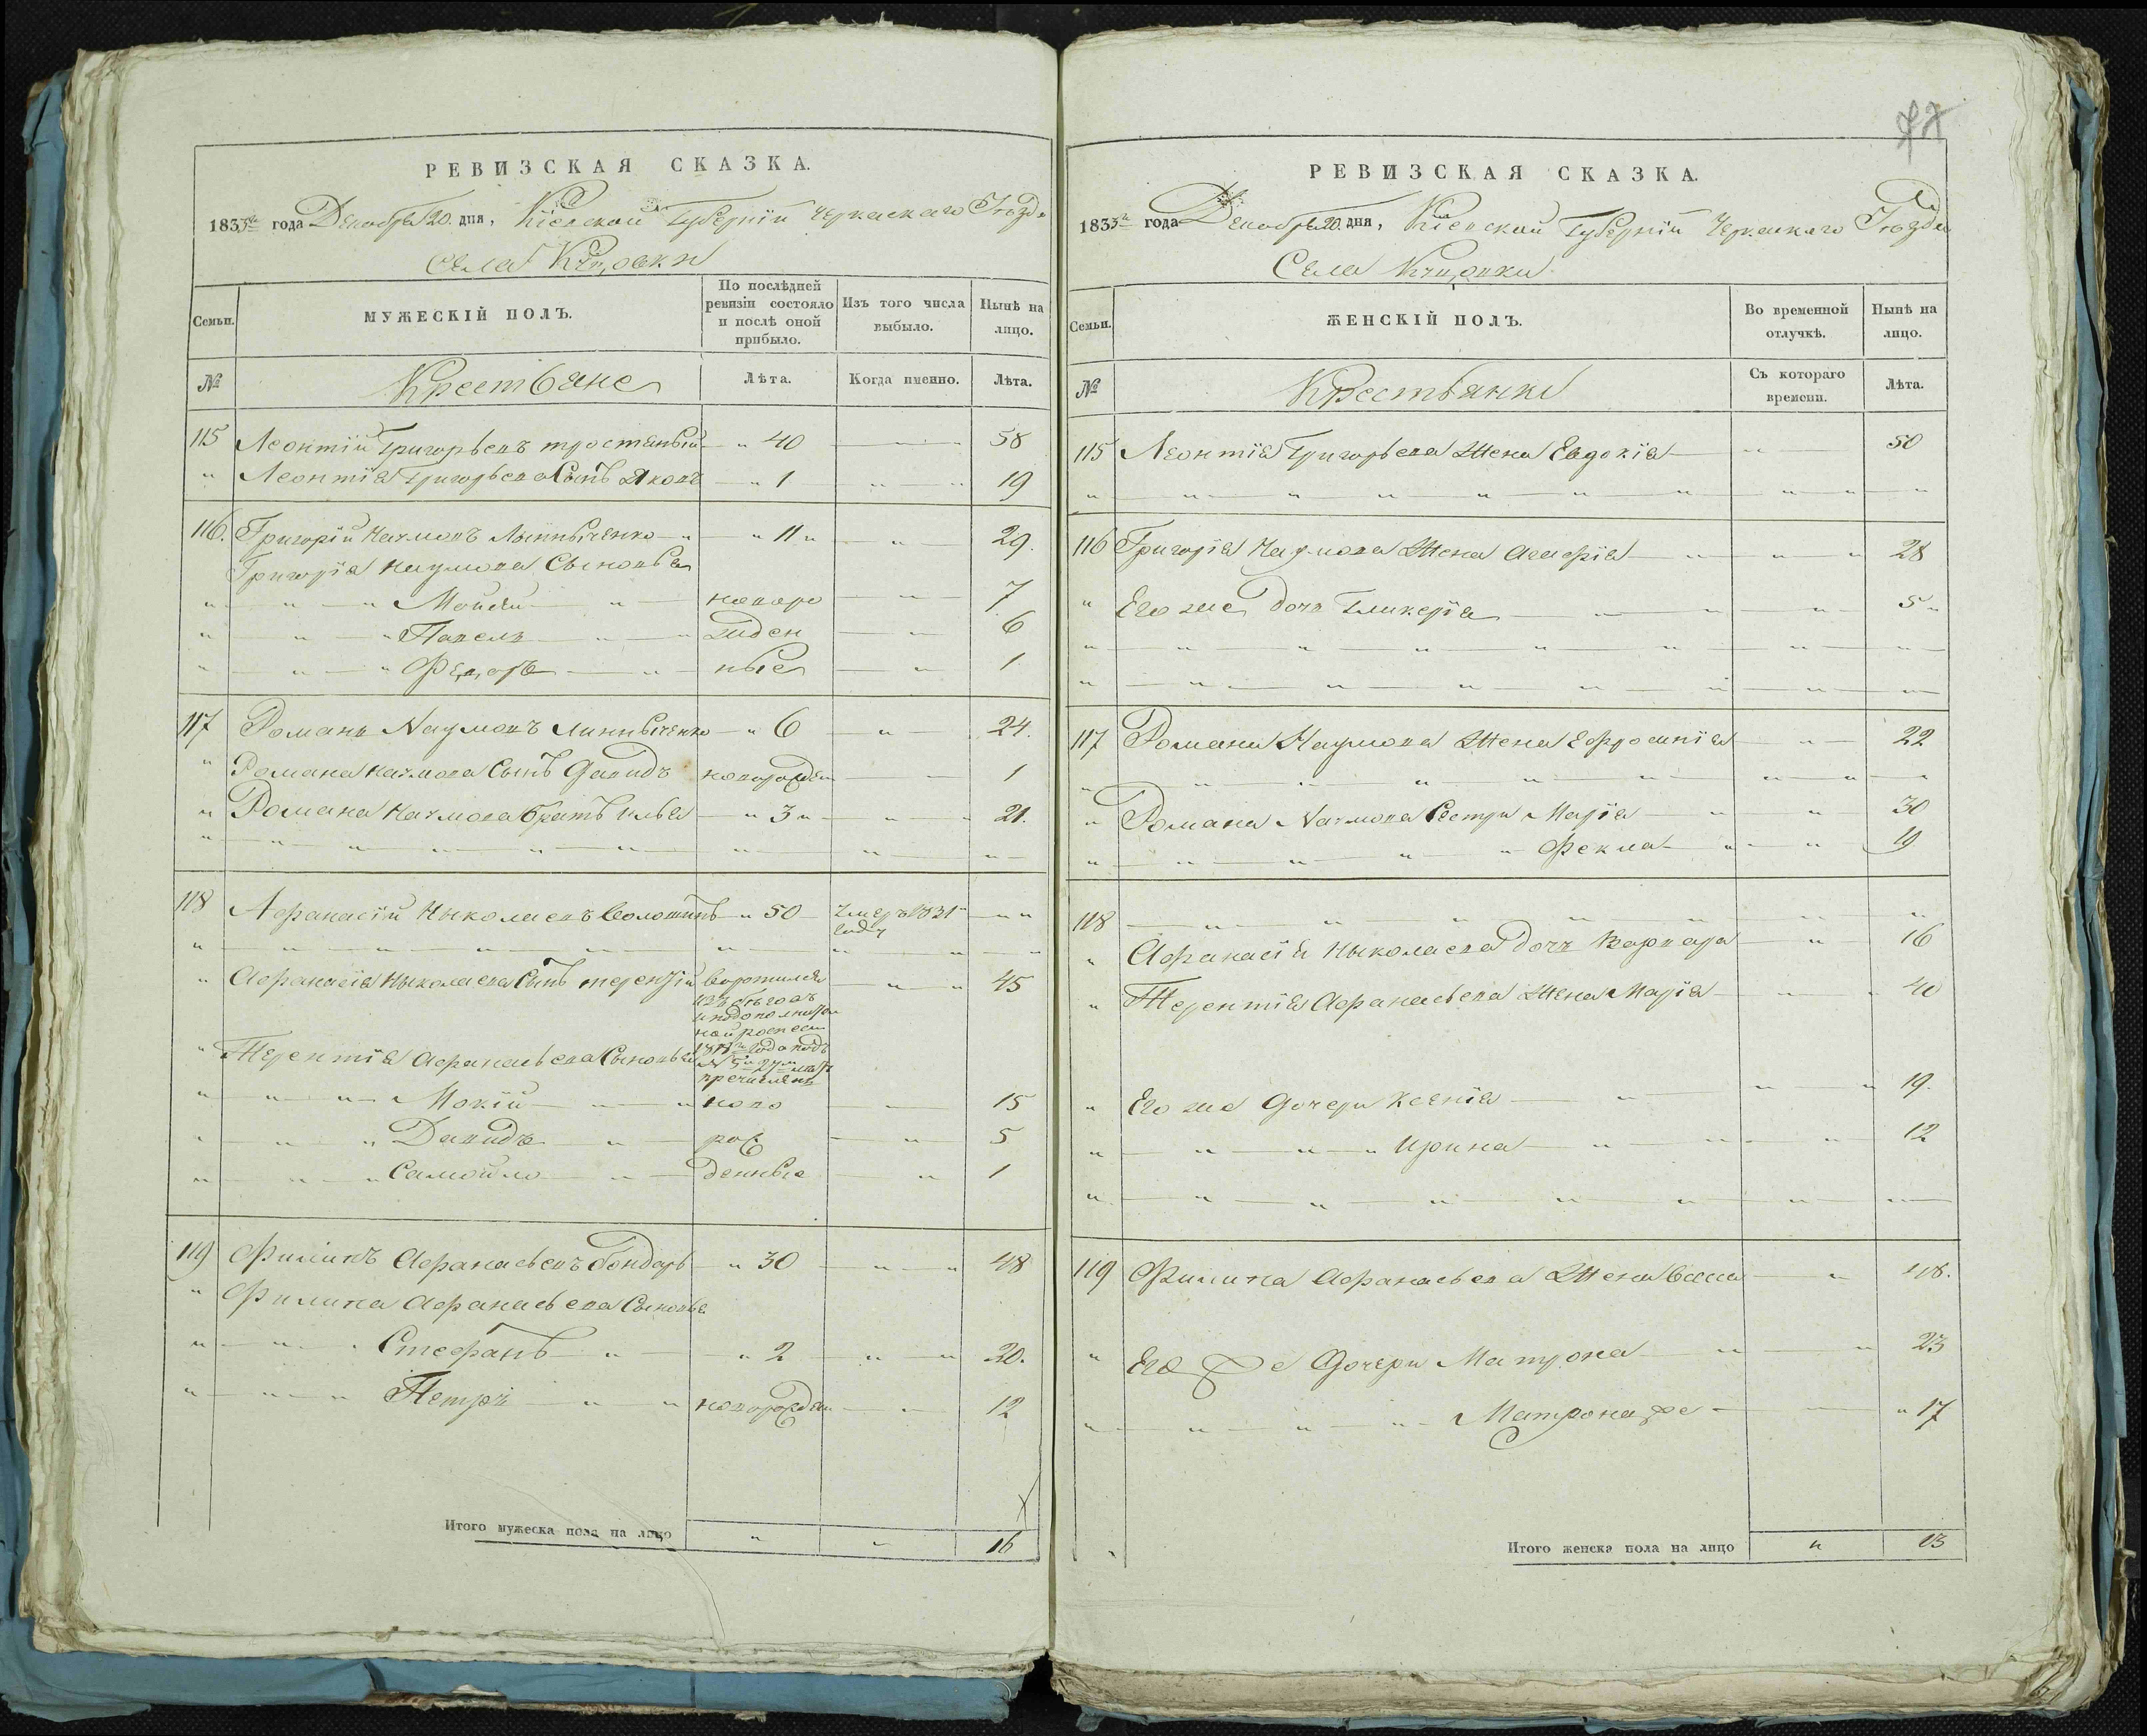 РЕВИЗСКАЯ СКАЗКА.
1833го года Декабря 20. дня, Кіевской Губерніи Черкаскаго Уѣзда
Села
МУЖЕСКІЙ ПОЛЪ.
Семьи.
По послѣдней ревизіи состояло и послѣ оной прибыло.
Изъ того числа выбыло.
Нынѣ на лицо.
№ Крестьяне Лѣта. Когда именно. Лѣта.
115 Леонтій Григорьевъ " 40 58
" Леонтія Григорьева Сынъ Яковъ " 1 19
116. Григорій Наумовъ " 11 " 29.
Григорія Наумова Сыновья
" Мойсей новоро 7
" Павелъ жден 6
" Федоръ ные 1
117 Романъ Наумовъ " 6 24.
" Романа Наумова Сынъ Давидъ новорожден 1
" Романа Наумова братъ Илья " 3 " 21.
118 Афанасій Николаевъ Волошинъ " 50 Умеръ 1831 году
" Афанасія Николаева Сынъ терентій воротился 45
изъ бѣговъ
и по дополнитель
ной
года подъ
№
" Терентія Афанасьева Сыновья
" Мокій ново 15
" Давидъ рож 5
" Самойло денные 1
119 Филипъ Афанасьевъ бондарь " 30 48
" Филипа Афанасьева Сыновья
" Стефанъ " 2 20.
" Петръ новорожден 12
Итого мужеска пола на лицо " " 16
РЕВИЗСКАЯ СКАЗКА.
1833го года Декабря 20. дня, Кіевской Губерніи Черкаскаго Уѣзда
Села
Семьи. ЖЕНСКІЙ ПОЛЪ. Во временной отлучкѣ. Нынѣ на лицо.
№ Крестьянки Съ котораго времени. Лѣта.
115 Леонтія Григорьева Жена Евдокія 50
116 Григорія Наумова Жена 28
" Его же дочь Гликерія 5 "
117 Романа Наумова Жена Ефросинія 22
" Романа Наумова Сестри Марія 30
" Фекла 19
118
" Афанасія Николаева дочь Варвара 16
" Терентія Афанасьева Жена Марія 40
" Его же дочери Ксенія 19.
" Ирина 12
119 Филипа Афанасьева Жена Васса 48.
" Его же дочери Матрона 23
" Матрона же " 17
Итого женска пола на лицо " 13